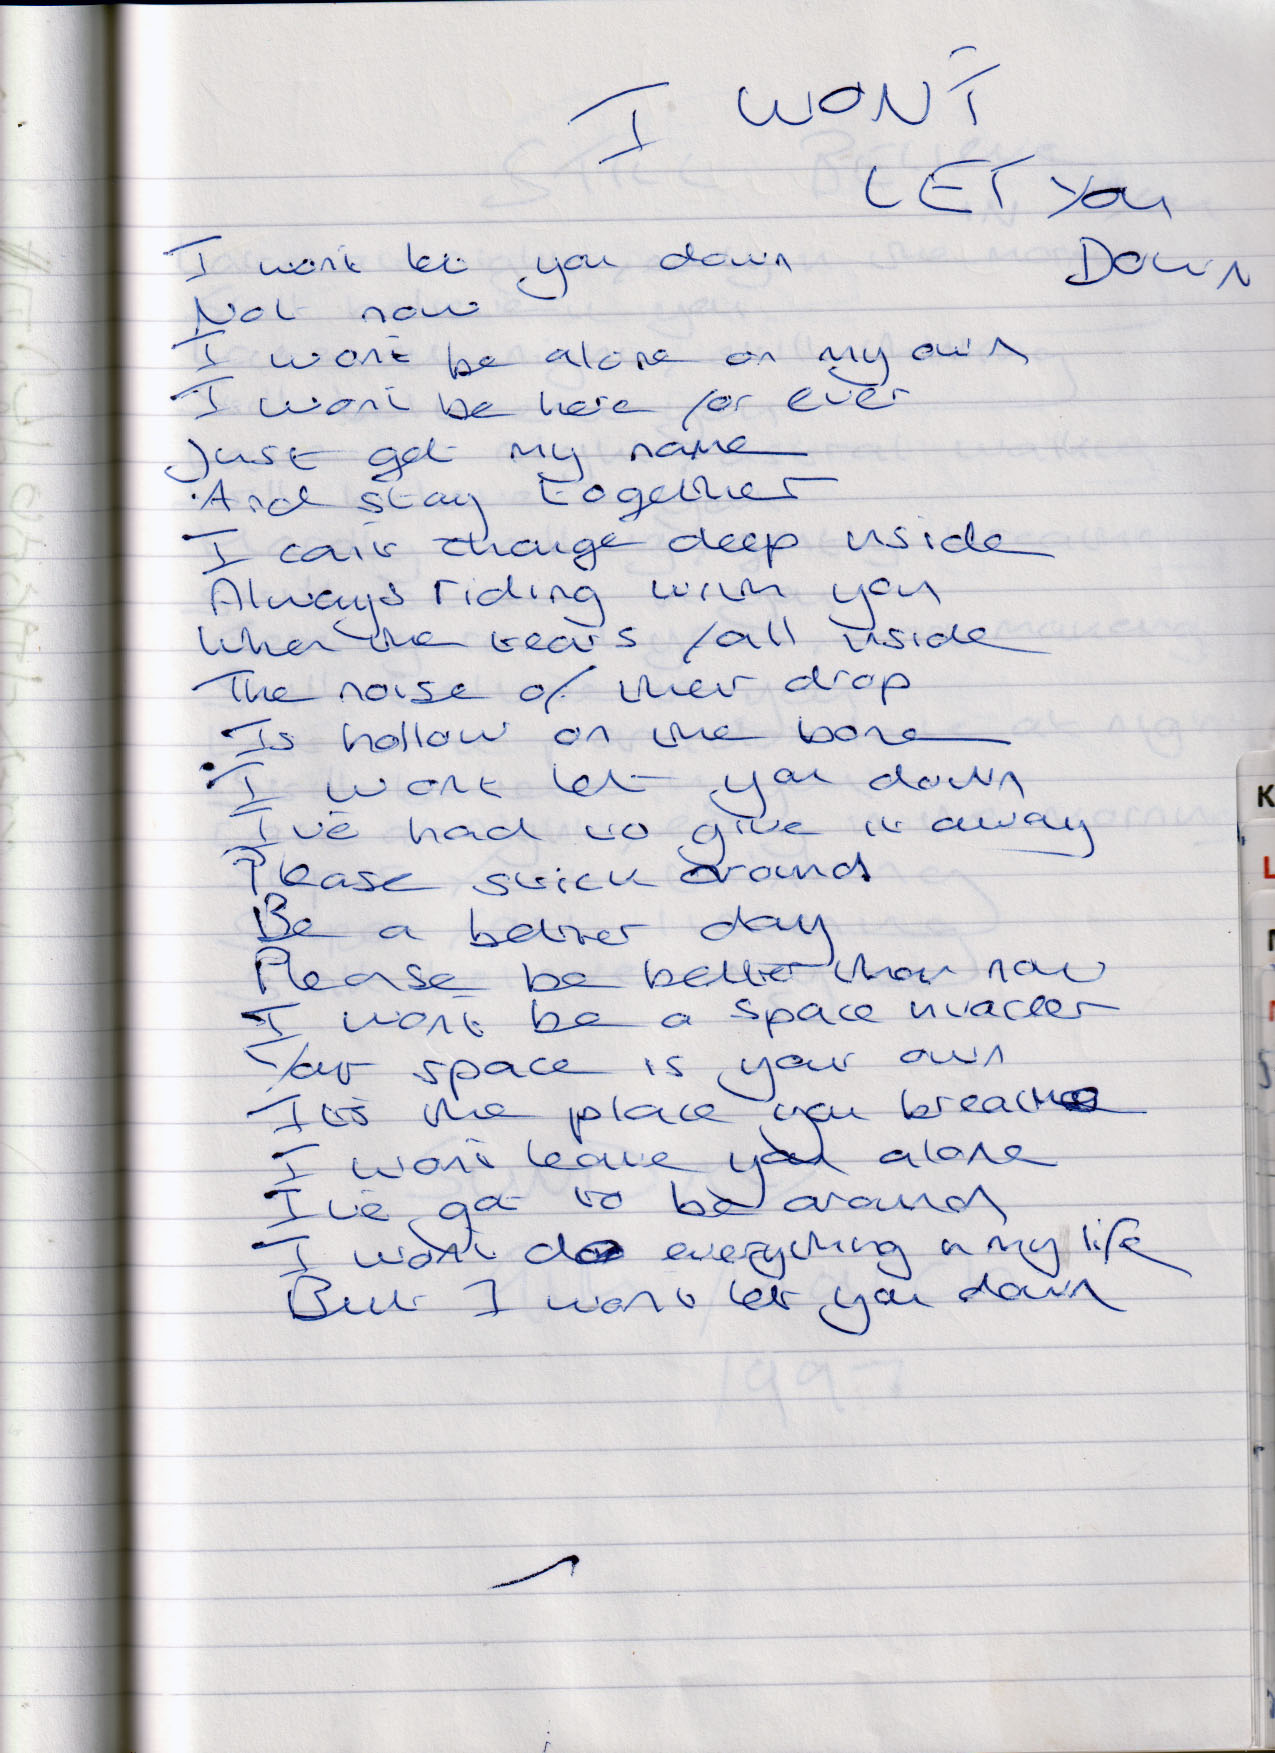 I WON'T
LET You
Down
I wont let you down
Not now
I wont be alone on my own
I wont be here for ever
Just get my name
And stay together
I cant change deep inside
Always riding with you
When the tears fall inside
The noise of their drop
Is hollow on the bone
I wont let you down
I've had to give it away
Please stick around
Be a better day
Please be better than now
I wont be a space invader
Your space is your own
It's the place you breathe
I wont leave you alone
I've got to be around
I wont do everything in my life
But I wont let you down
K
L